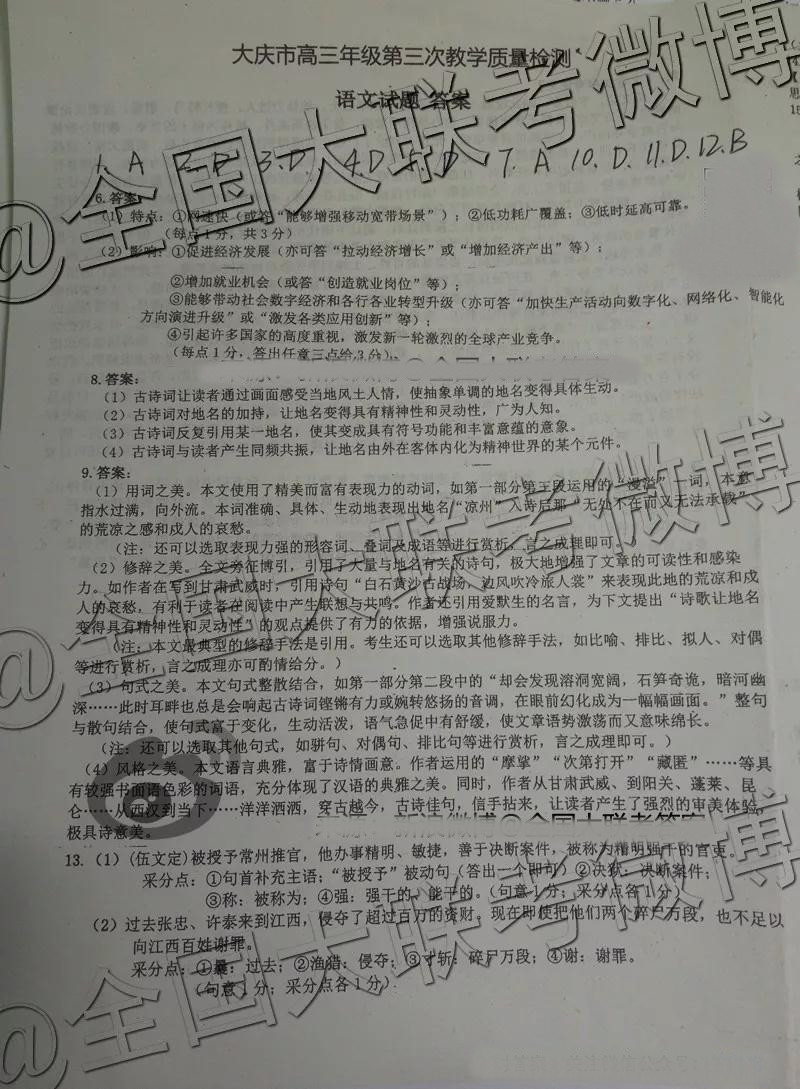 大庆市高三年级第三次教学质量检测
语文试题 答案
1. A 2. 3. D. 4. D D 7. A 10. D. 11. D. 12. B
6.答案:
(1)特点:①网速快(或答“能够增强移动宽带场景”);②低功耗广覆盖;③低时延高可靠。
(每点1分,共3分)
(2)影响:①促进经济发展(亦可答“拉动经济增长”或“增加经济产出”等);
②增加就业机会(或答“创造就业岗位”等);
③能够带动社会数字经济和各行各业转型升级(亦可答“加快生产活动向数字化、网络化、智能化
方向演进升级”或“激发各类应用创新”等);
④引起许多国家的高度重视,激发新一轮激烈的全球产业竞争。
(每点1分,答出任意三点给3分)
8.答案:
(1)古诗词让读者通过画面感受当地风土人情,使抽象单调的地名变得具体生动。
(2)古诗词对地名的加持,让地名变得具有精神性和灵动性,广为人知。
(3)古诗词反复引用某一地名,使其变成具有符号功能和丰富意蕴的意象。
(4)古诗词与读者产生同频共振,让地名由外在客体内化为精神世界的某个元件。
9.答案:
(1)用词之美。本文使用了精美而富有表现力的动词,如第一部分第三段运用的“漫溢”一词,本意
指水过满,向外流。本词准确、具体、生动地表现出地名“凉州”入诗后那“无处不在而又无法承载”
的荒凉之感和戍人的哀愁。
(注:还可以选取表现力强的形容词、叠词及成语等进行赏析,言之成理即可。)
(2)修辞之美。全文旁征博引,引用了大量与地名有关的诗句,极大地增强了文章的可读性和感染
力。如作者在写到甘肃武威时,引用诗句“白石黄沙古战场,边风吹冷旅人裳”来表现此地的荒凉和戍
人的哀愁,有利于读者在阅读中产生联想与共鸣。作者还引用爱默生的名言,为下文提出“诗歌让地名
变得具有精神性和灵动性”的观点提供了有力的依据,增强说服力。
(注:本文最典型的修辞手法是引用。考生还可以选取其他修辞手法,如比喻、排比、拟人、对偶
等进行赏析,言之成理亦可酌情给分。)
(3)句式之美。本文句式整散结合,如第一部分第二段中的“却会发现溶洞宽阔,石笋奇诡,暗河幽
深……此时耳畔也总是会响起古诗词铿锵有力或婉转悠扬的音调,在眼前幻化成为一幅幅画面。”整句
与散句结合,使句式富于变化,生动活泼,语气急促中有舒缓,使文章语势激荡而又意味绵长。
(注:还可以选取其他句式,如骈句、对偶句、排比句等进行赏析,言之成理即可。)
(4)风格之美。本文语言典雅,富于诗情画意。作者运用的“摩挲”“次第打开”“藏匿”……等具
有较强书面语色彩的词语,充分体现了汉语的典雅之美。同时,作者从甘肃武威、到阳关、蓬莱、昆
仑……从西汉到当下……洋洋洒洒,穿古越今,古诗佳句,信手拈来,让读者产生了强烈的审美体验,
极具诗意美。
13.(1)(伍文定)被授予常州推官,他办事精明、敏捷,善于决断案件,被称为精明强干的官吏。
采分点:①句首补充主语;“被授予”被动句(答出一个即可)②决狱:决断案件;
③称:被称为;④强:强干的、能干的。(句意1分;采分点各1分)
(2)过去张忠、许泰来到江西,侵夺了超过百万的资财。现在即使把他们两个碎尸万段,也不足以
向江西百姓谢罪。
采分点:①曩:过去;②渔猎:侵夺;③寸斩:碎尸万段;④谢:谢罪。
(句意1分;采分点各1分)
@全国大联考微博
@全国大联考微博
@全国大联考微博